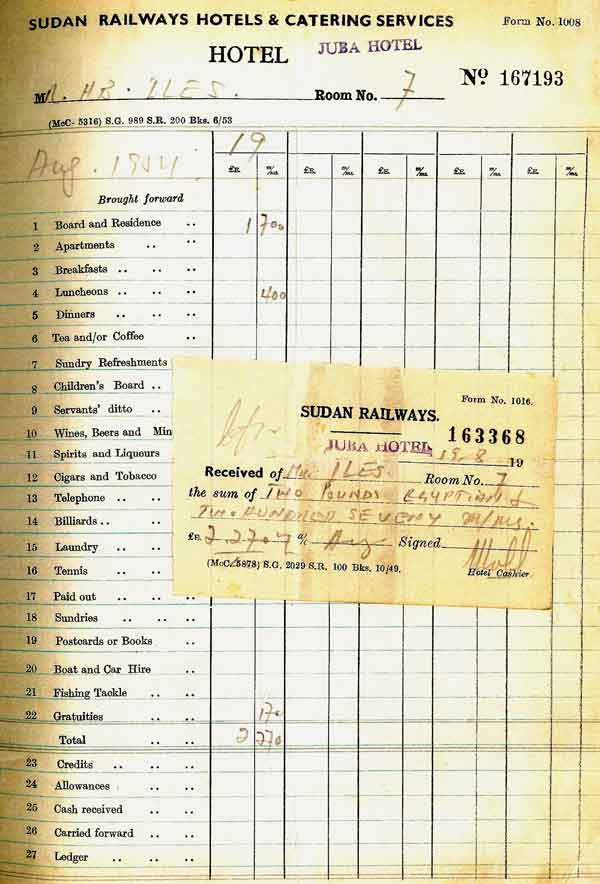 SUDAN RAILWAYS HOTELS & CATERING SERVICES Form No. 1008
HOTEL JUBA HOTEL
Mr. HB. ILES. Room No. 7 No 167193
(McC- 5316) S.G. 989 S.R. 200 Bks. 6/53
19
Aug. 1954. £E. m/ms. £E. m/ms. £E. m/ms. £E. m/ms. £E. m/ms.
Brought forward
1 Board and Residence .. 1 700
2 Apartments .. ..
3 Breakfasts .. .. ..
4 Luncheons .. .. .. 400
5 Dinners .. .. ..
6 Tea and/or Coffee ..
7 Sundry Refreshments
8 Children's Board ..
9 Servants' ditto ..
10 Wines, Beers and Min
11 Spirits and Liqueurs
12 Cigars and Tobacco
13 Telephone .. ..
14 Billiards .. ..
15 Laundry .. ..
16 Tennis .. ..
17 Paid out .. .. ..
18 Sundries .. .. ..
19 Postcards or Books ..
20 Boat and Car Hire ..
21 Fishing Tackle .. ..
22 Gratuities .. .. 170
Total .. .. 2 270
23 Credits .. .. ..
24 Allowances .. ..
25 Cash received .. ..
26 Carried forward .. ..
27 Ledger .. .. ..
Form No. 1016.
SUDAN RAILWAYS.
JUBA HOTEL 163368
19.8 19
Received of Mr ILES. Room No. 7
the sum of TWO POUNDS EGYPTIAN &
TWO HUNDRED SEVENTY M/MS.
£E. 2.270 a/c Aug Signed
(McC. 5878) S.G. 2029 S.R. 100 Bks. 10/49. Hotel Cashier.